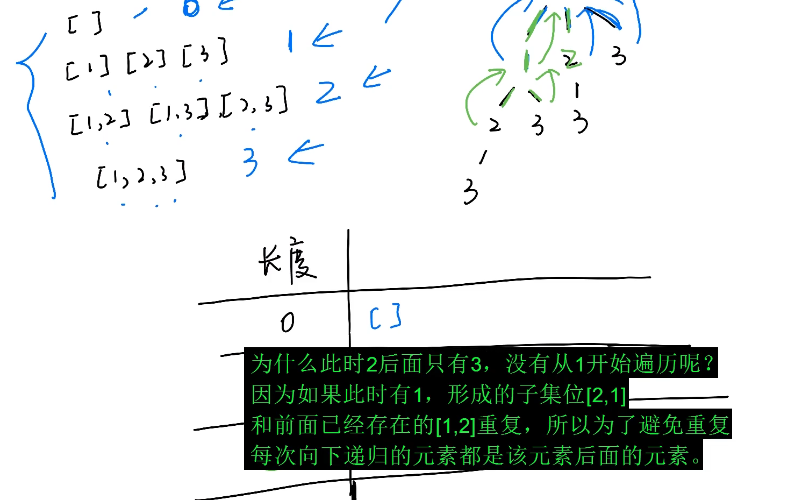 [ ] 0
[1] [2] [3] 1
[1,2] [1,3], [2,3] 2
[1,2,3] 3
1
1 2 3
2 3 3
3
长度
0 [ ]
为什么此时2后面只有3，没有从1开始遍历呢？
因为如果此时有1，形成的子集位[2,1]
和前面已经存在的[1,2]重复，所以为了避免重复
每次向下递归的元素都是该元素后面的元素。